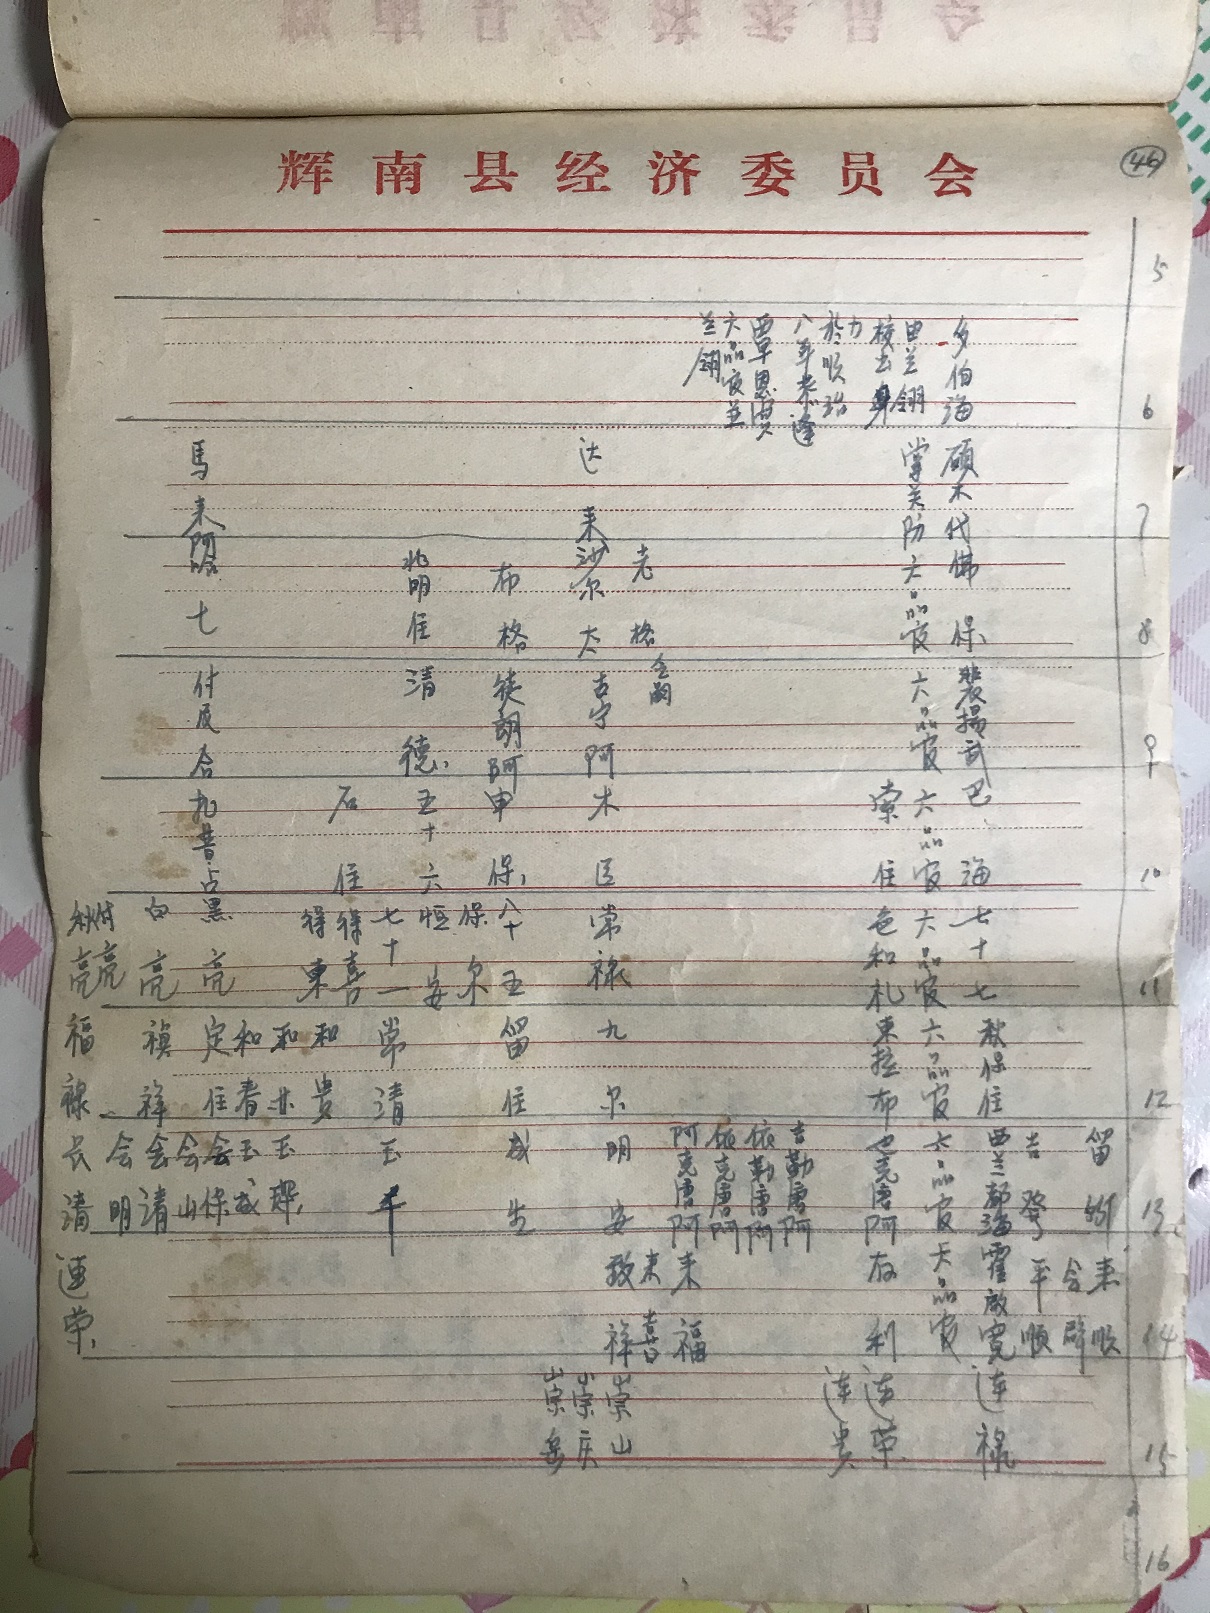 辉南县经济委员会
46
5
6
7
8
9
10
11
12
13
14
15
16
多伯海
由兰翎
校出身
於顺治
八年恭逢
覃恩赏
六品官并
兰翎
硕木代
掌关防六品官
佛保
达来
馬来阿哈
老格
沙尔太
布格
兆明
住清
七
裴揚武
六品官
古宁阿
徒朗阿
德
付反合
巴海
六品官
索住
木臣
申保
五十六
石住
扎昔占
七十七
六品官
色和札
常禄
八十五
保尔
恒安
七十一
得喜
得東
黑亮
白亮
付亮
秋亮
秋保住
六品官
東拉布
九尔
留住
常清
和贵
和春
定住
禎祥
福禄
留
吉
西兰都海
六品官
也克唐阿
吉勒唐阿
依勒唐阿
依克唐阿
阿克唐阿
明安
成生
玉
玉成
会保
会山
会清
会明
长清
来顺
平顺
霍啟宽
六品官
存利
来福
来喜
致祥
連荣
连禄
连荣
连贵
崇山
崇庆
崇岳